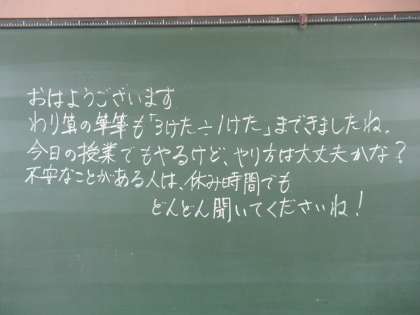 おはようございます
わり算の筆算も「3けた÷1けた」まできましたね。
今日の授業でもやるけど、やり方は大丈夫かな?
不安なことがある人は、休み時間でも
どんどん聞いてくださいね!